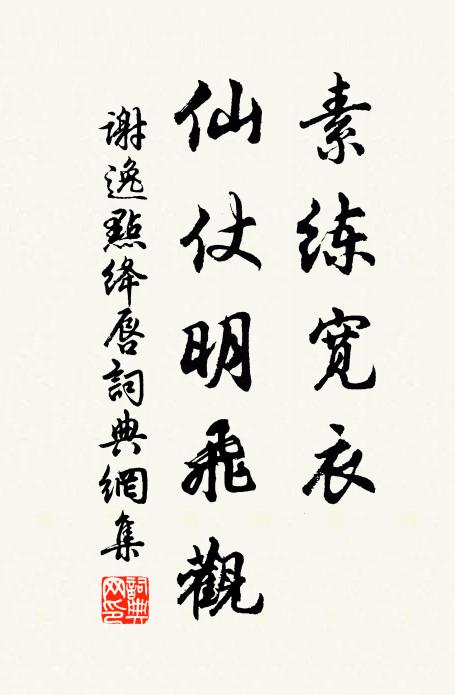 素练宽衣
仙仗明飛觀
謝逸點绛唇詞典網集
詞典网印